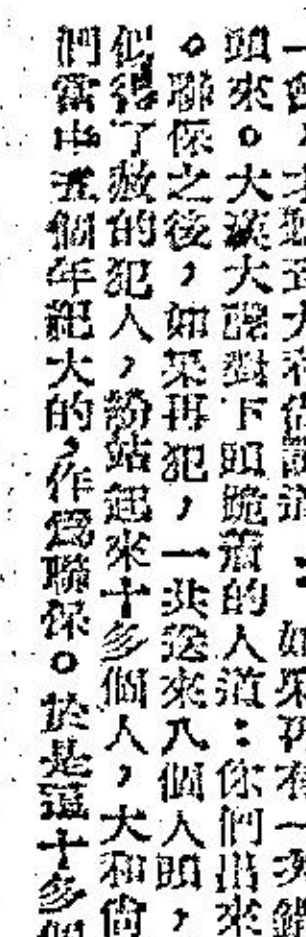 一會,才大和尚道:如果再有一次錯
頭來。大漢大聲對下頭跪着的人道:你們出來
。聯保之後,如果再犯,一共送來八個人頭,
似得了赦的犯人,紛站起來十多個人,大和尚
們當中五個年紀大的,作爲聯保。於是這十多個